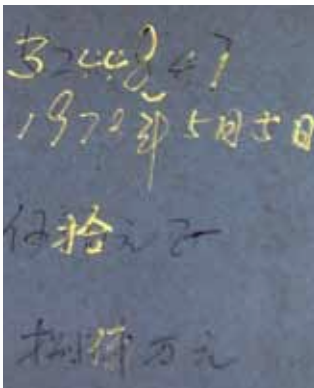 3244847
1972年5月5日
伍拾元正
捌仟万元